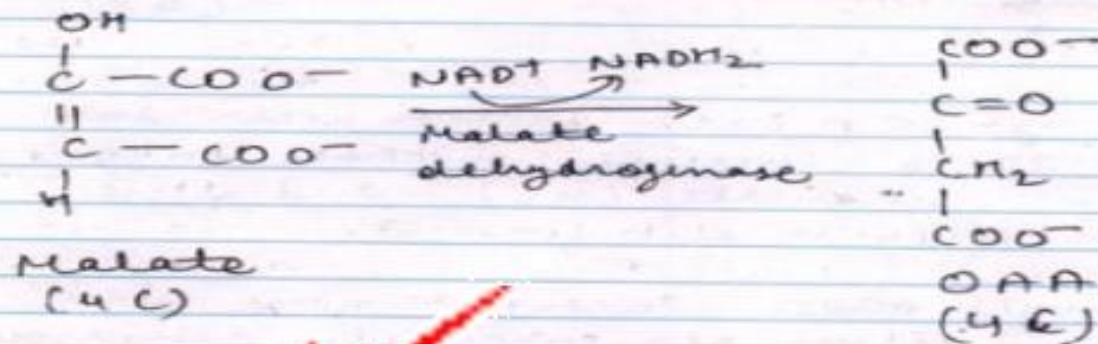 OH
C — COO⁻
C — COO⁻
H
Malate
(4C)
NAD⁺ NADH₂
Malate
dehydrogenase
COO⁻
C=O
CH₂
COO⁻
OAA
(4C)